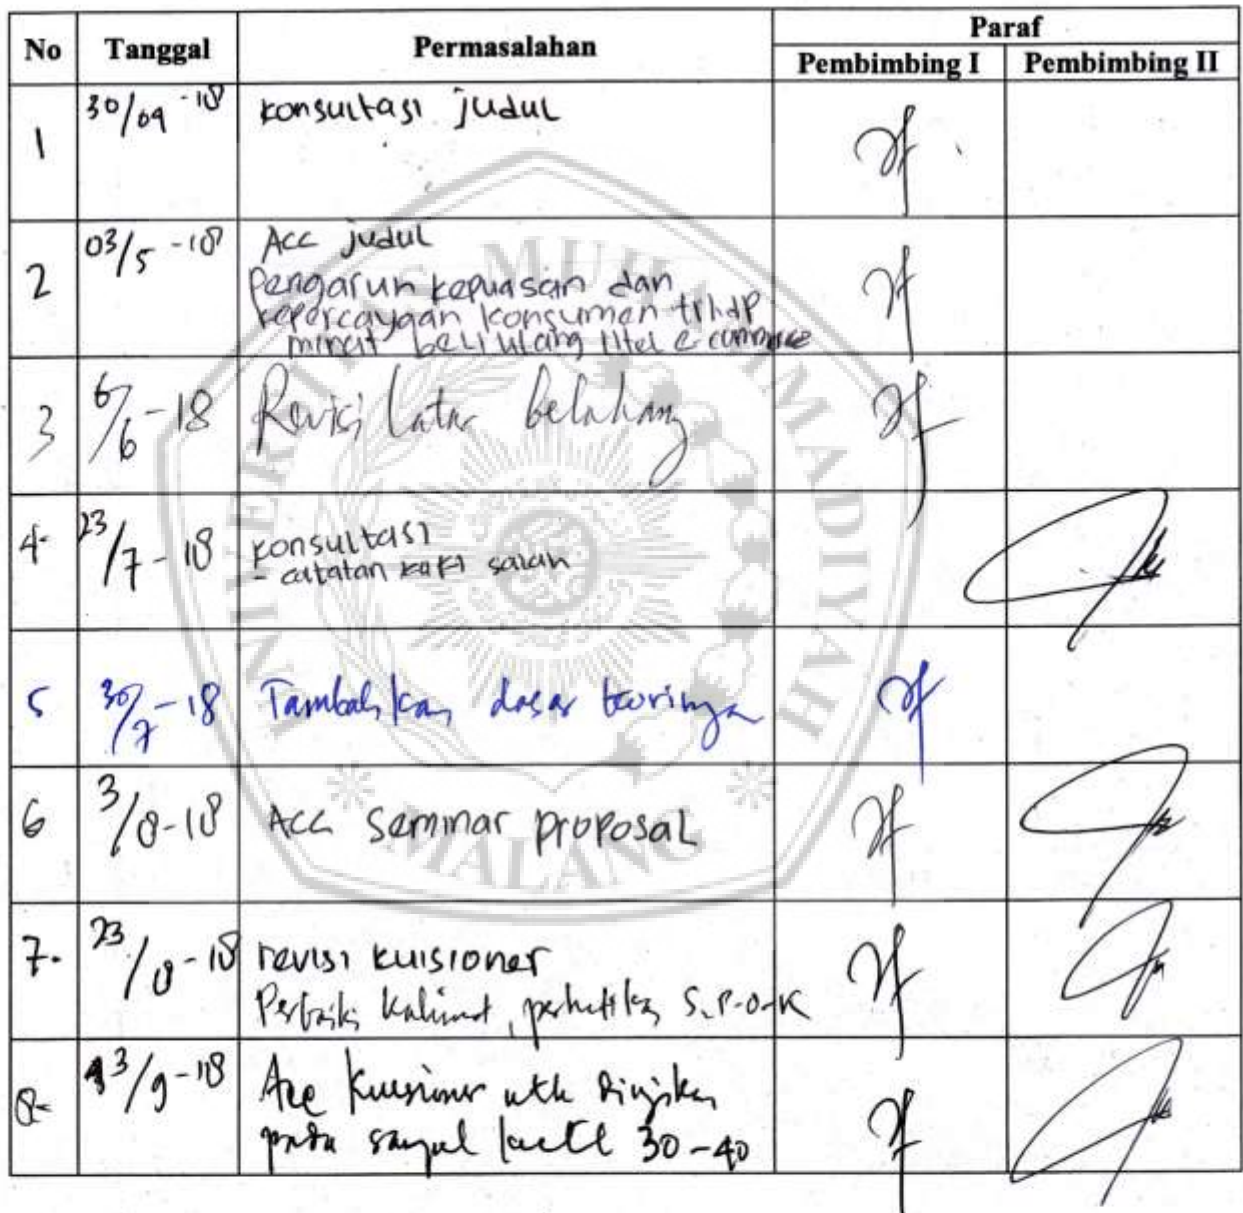 No Tanggal Permasalahan Paraf
Pembimbing I Pembimbing II
1 30/04-18 konsultasi judul
2 03/5-18 Acc judul
Pengaruh kepuasan dan
kepercayaan konsumen trhdp
minat beli ulang ritel e-commerce
3 6/6-18 Revisi latar belakang
4- 23/7-18 konsultasi
- catatan kaki salah
5 30/7-18 Tambahkan dasar teorinya
6 3/8-18 Acc seminar proposal
7- 23/8-18 revisi kuisioner
Perbaiki kalimat, perhatikan S.P-O-K
8- 13/9-18 Acc kuesioner utk diujikan
pada sampel kecil 30-40
UNIVERSITAS MUHAMMADIYAH
MALANG